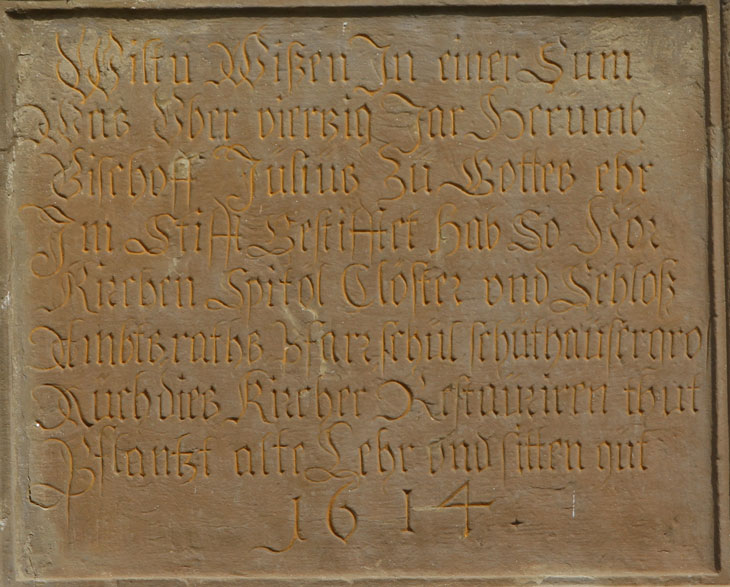 Wiltu Wißen In einer Sum
Was Vber viertzig Jar Herumb
Bischoff Julius Zu Gottes ehr
Im Stifft Gestifftet hab So Hör
Kirchen Spitol Closter vnd Schloß
Ambtsraths Pfarr schul schuthauser gro
Auch dies Kircher Restauriren thut
Pflantzt alte Lehr vnd sitten gut
1614